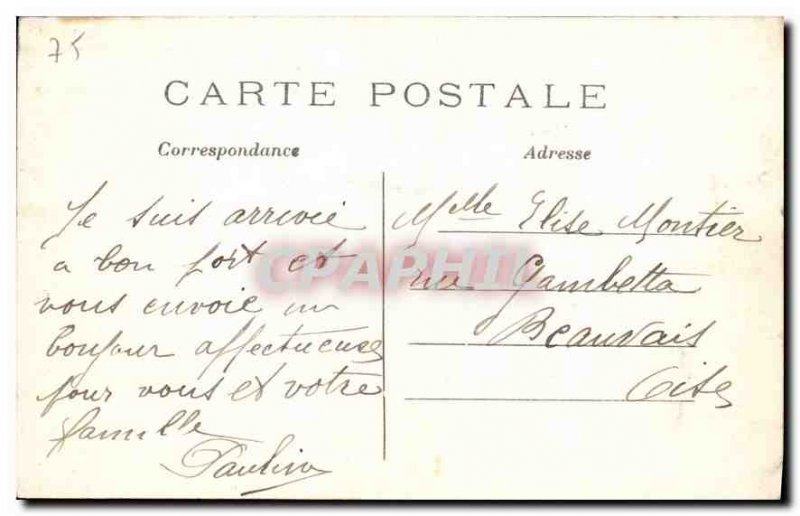 75
CARTE POSTALE
Correspondance
Adresse
Je suis arrivée
a bon port et
vous envoie un
bonjour affectueuse
pour vous et votre
famille
Pauline
Mlle Elise Montier
rue Gambetta
Beauvais
Oise
CPAPHIL